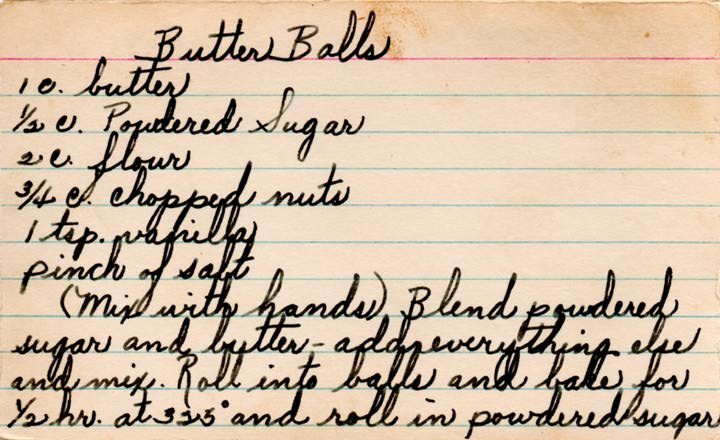 Butter Balls
1 c. butter
1/2 c. Powdered Sugar
2 c. flour
3/4 c. chopped nuts
1 tsp. vanilla
pinch of salt
(Mix with hands) Blend powdered
sugar and butter - add everything else
and mix. Roll into balls and bake for
1/2 hr. at 325° and roll in powdered sugar